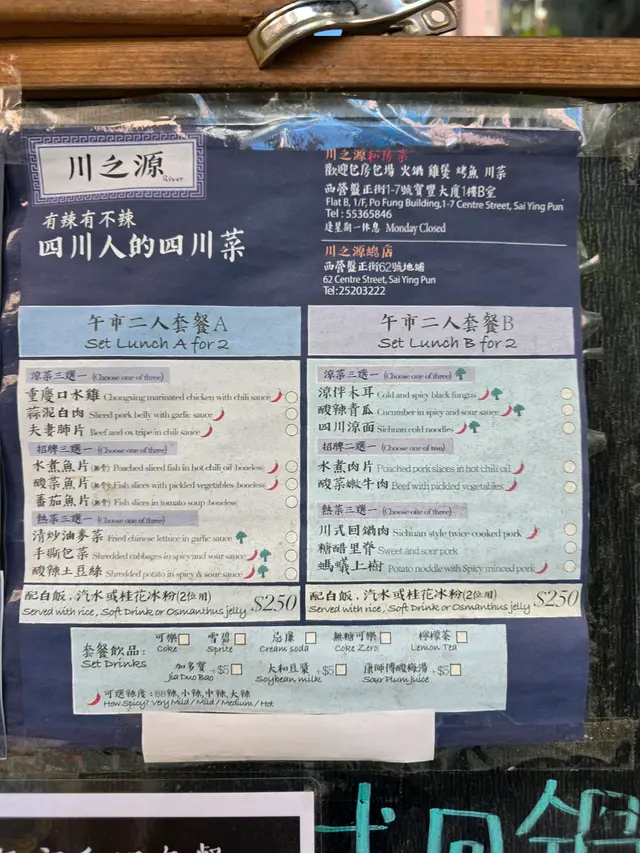 川之源
River
有辣有不辣
四川人的四川菜
川之源私房菜
歡迎包房包場 火鍋 雞煲 烤魚 川菜
西營盤正街1-7號寶豐大廈1樓B室
Flat B, 1/F, Po Fung Building,1-7 Centre Street, Sai Ying Pun
Tel : 55365846
逢星期一休息 Monday Closed
川之源總店
西營盤正街62號地鋪
62 Centre Street, Sai Ying Pun
Tel:25203222
午市二人套餐A
Set Lunch A for 2
涼菜三選一 (Choose one of three)
重慶口水雞 Chongxing marinated chicken with chili sauce
蒜泥白肉 Sliced pork belly with garlic sauce
夫妻肺片 Beef and ox tripe in chili sauce
招牌三選一 (Choose one of three)
水煮魚片(無骨) Poached sliced fish in hot chili oil boneless
酸菜魚片(無骨) Fish slices with pickled vegetables boneless
蕃茄魚片(無骨) Fish slices in tomato soup boneless
熱菜三選一 (Choose one of three)
清炒油麥菜 Fried chinese lettuce in garlic sauce
手撕包菜 Shredded cabbages in spicy and sour sauce
酸辣土豆絲 Shredded potato in spicy & sour sauce
配白飯，汽水或桂花冰粉(2位用)
Served with rice, Soft Drink or Osmanthus jelly
$250
午市二人套餐B
Set Lunch B for 2
涼菜三選一 (Choose one of three)
涼伴木耳 Cold and spicy black fungus
酸辣青瓜 Cucumber in spicy and sour sauce
四川涼面 Sichuan cold noodles
招牌二選一 (Choose one of two)
水煮肉片 Poached pork slices in hot chili oil
酸菜嫩牛肉 Beef with pickled vegetables
熱菜三選一 (Choose one of three)
川式回鍋肉 Sichuan style twice cooked pork
糖醋里脊 Sweet and sour pork
螞蟻上樹 Potato noddle with Spicy minced pork
配白飯，汽水或桂花冰粉(2位用)
Served with rice, Soft Drink or Osmanthus jelly
$250
套餐飲品：
Set Drinks
可樂 雪碧 忌廉 無糖可樂 檸檬茶
Coke Sprite Cream soda Coke Zero Lemon Tea
加多寶 +$5 大和豆漿 +$5 康師傅酸梅湯 +$5
Jia Duo Bao Soybean milk Sour Plum Juice
可選辣度：BB辣,小辣,中辣,大辣
How Spicy? Very Mild / Mild / Medium / Hot
回鍋